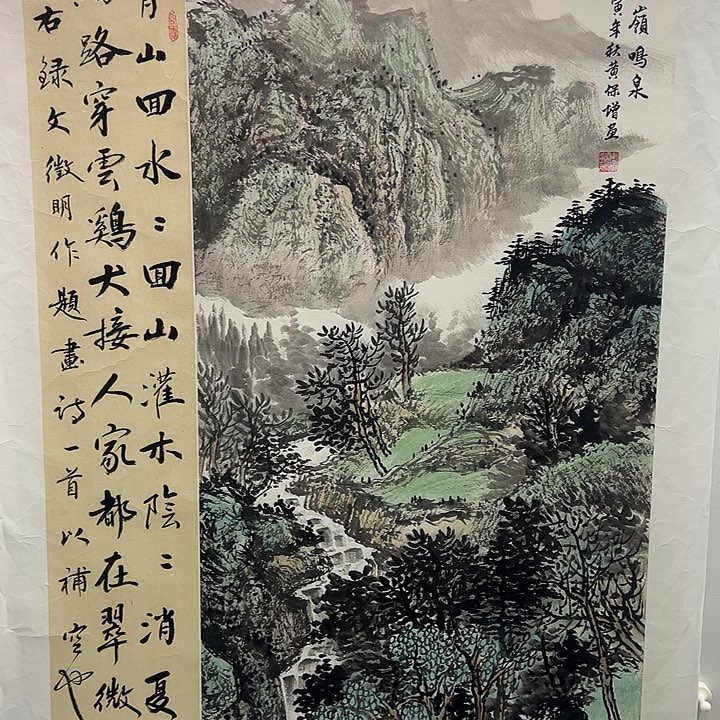 嶺鳴泉
寅年秋黄保增画
山囬水〻囬山灌木陰〻消夏
路穿雲鷄犬接人家都在翠微
右録文徵明作題畫诗一首以補空也